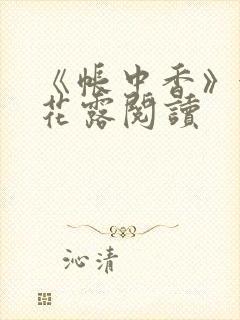 《帳中香》
花露閱讀
沁清